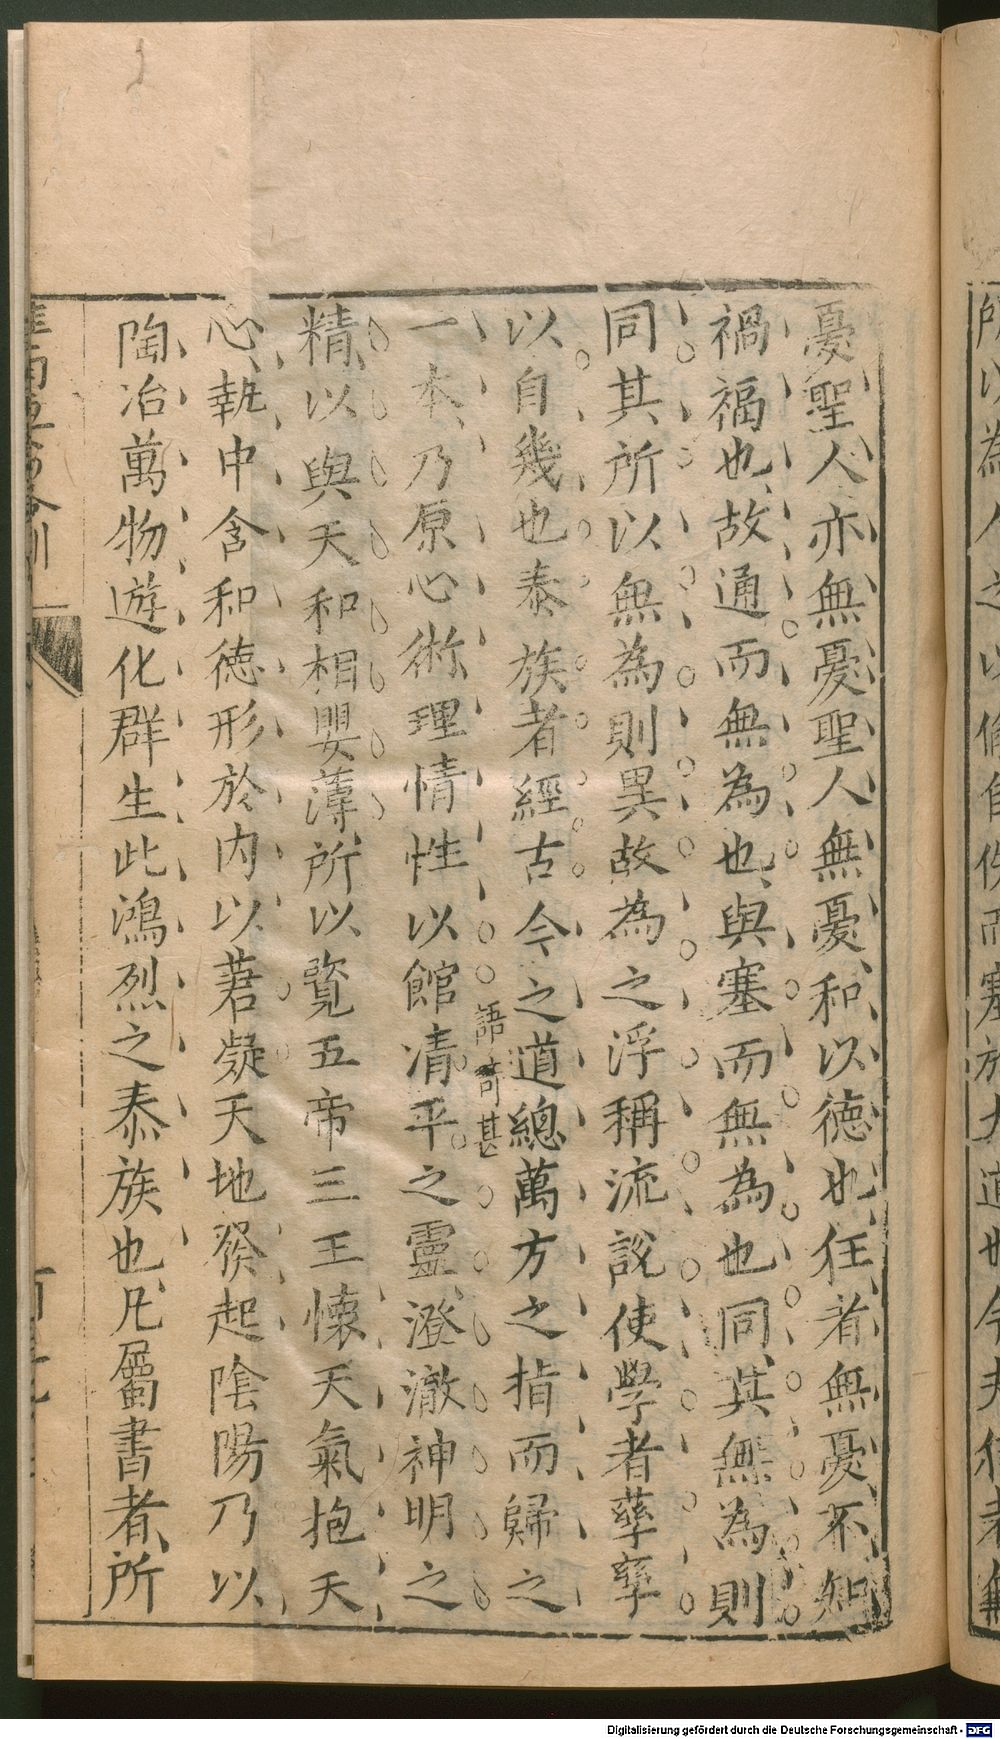 憂聖人亦無憂聖人無憂和以德也狂者無憂不知
禍福也故通而無為也與塞而無為也同其無為則
同其所以無為則異故為之浮稱流說使學者孳孳
以自幾也泰族者經古今之道總萬方之指而歸之
語奇甚
一本乃原心術理情性以館清平之靈澄澈神明之
精以與天和相嬰薄所以覽五帝三王懷天氣抱天
心執中含和德形於内以莙凝天地發起陰陽乃以
陶冶萬物遊化群生此鴻烈之泰族也凡屬書者所
Digitalisierung gefördert durch die Deutsche Forschungsgemeinschaft - DFG